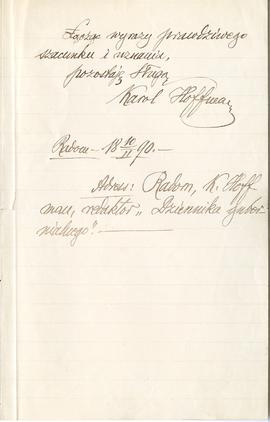 Łącząc wyrazy prawdziwego
szacunku i uznania,
pozostaję sługą
Karol Hoffman
Radom – 18 10/11 90. –
Adres: Radom, K. Hoff
man, redaktor „Dziennika guber
nialnego”. –